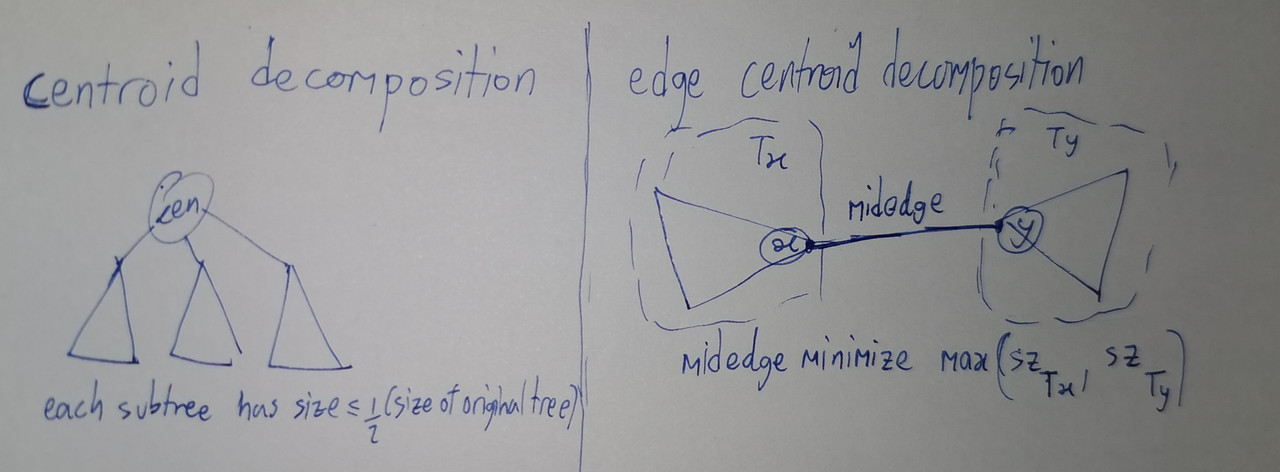 centroid decomposition
cen
each subtree has size ≤ 1/2 (size of original tree)
edge centroid decomposition
Tx
Ty
midedge
x
y
midedge minimize max(sz_Tx, sz_Ty)